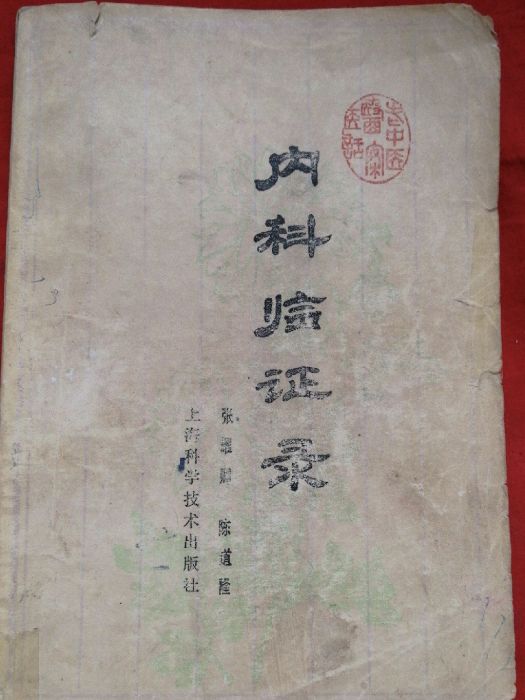 老中医
医案
医话
内科临证录
张耀卿 陈道隆
上海科学技术出版社